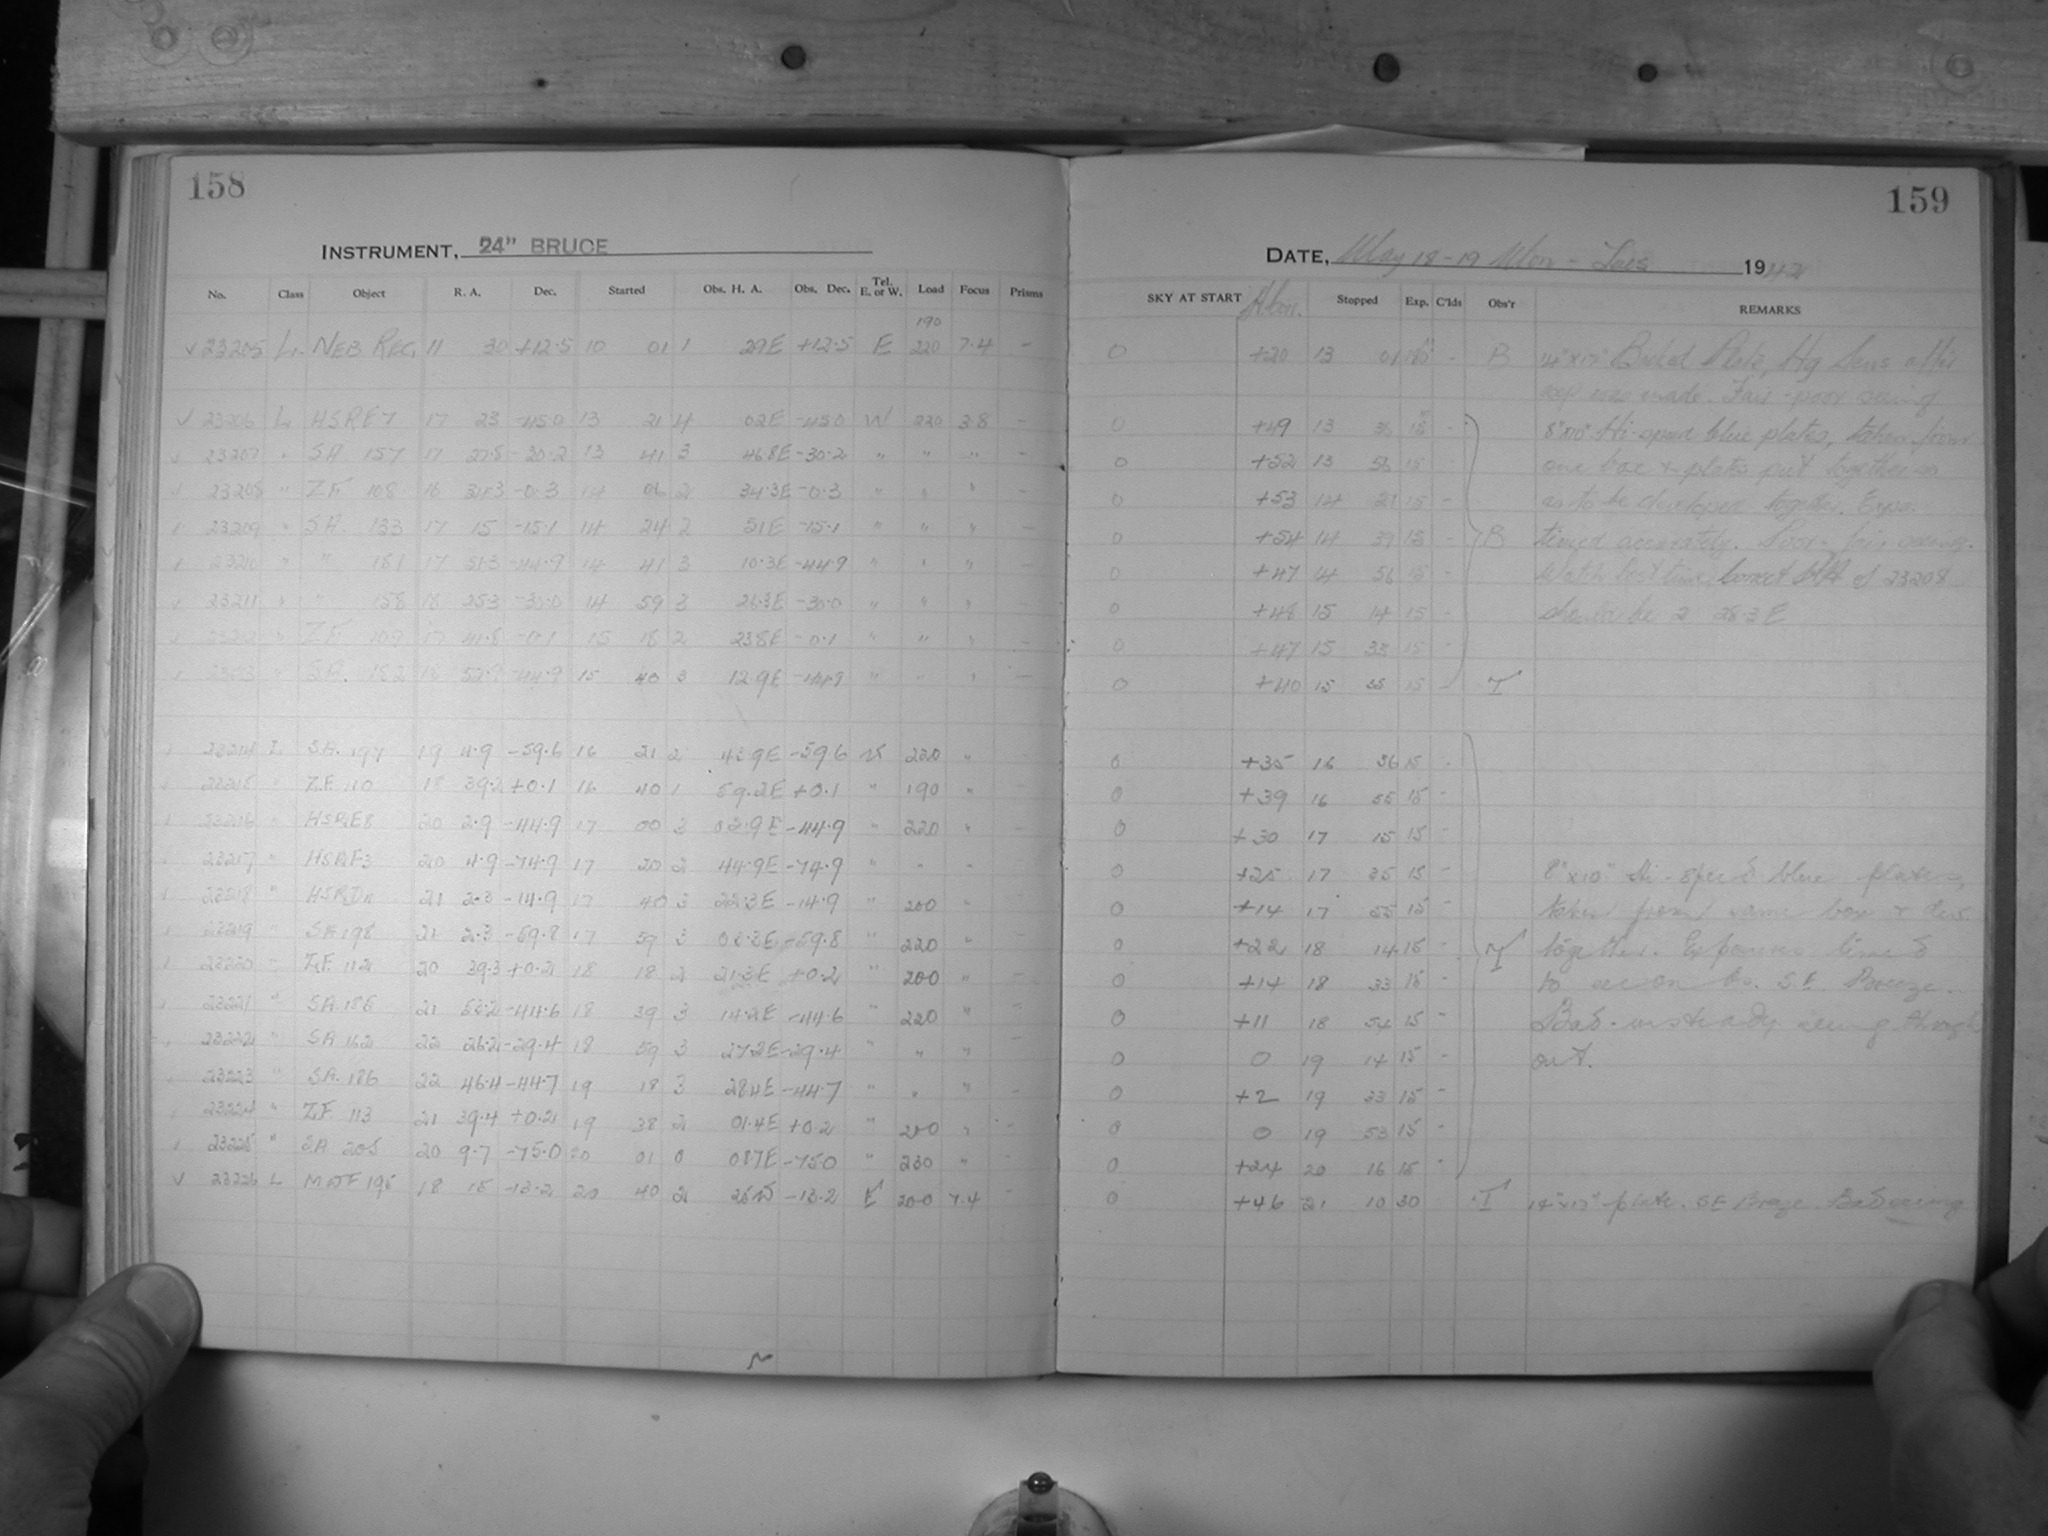 158
INSTRUMENT, 24" BRUCE
No. Class Object R. A. Dec. Started Obs. H. A. Obs. Dec. Tel. E. or W. Load Focus Prisms
190
23205 L. NEB REG. 11 30 +12.5 10 01 1 29E +12.5 E 220 7.4 -
23206 L HSRE7 17 23 -45.0 13 21 4 02E -45.0 W 220 3.8 -
23207 " SA 157 17 27.8 -30.2 13 41 3 46.8E -30.2 " " " -
23208 " ZF 108 16 -0.3 14 06 2 34.3E -0.3 " " " -
23209 " SA. 133 17 15 -15.1 14 24 2 51E -15.1 " " " -
23210 " " 181 17 51.3 -44.9 14 41 3 10.3E -44.9 " " " -
23211 " " 158 18 25.3 -30.0 14 59 3 26.3E -30.0 " " " -
23212 " ZF 109 17 41.8 -0.1 15 18 2 23.8E -0.1 " " " -
23213 " SA. 182 18 52.9 -44.9 15 40 3 12.9E " " " -
23214 L SA. 197 19 4.9 -59.6 16 21 2 -59.6 W 220 "
23215 " ZF 110 18 39.2 +0.1 16 40 1 59.2E +0.1 " 190 "
23216 " HSRE8 20 2.9 -44.9 17 00 3 02.9E -44.9 " 220 "
23217 " HSRF3 20 4.9 -74.9 17 20 2 44.9E -74.9 " " "
23218 " 21 2.3 -14.9 17 40 3 22.3E -14.9 " 200 "
23219 " SA 198 21 2.3 -59.8 17 59 3 03.3E -59.8 " 220 "
23220 " ZF 112 20 39.3 +0.2 18 18 2 21.3E +0.2 " 200 " -
23221 " SA 185 21 53.2 -44.6 18 39 3 14.2E -44.6 " 220 " -
23222 " SA 162 22 26.2 -29.4 18 59 3 27.2E -29.4 " " " -
23223 " SA. 186 22 46.4 -44.7 19 18 3 28.4E -44.7 " " " -
23224 " ZF 113 21 39.4 +0.2 19 38 2 01.4E +0.2 " 200 " -
23225 " SA 205 20 9.7 -75.0 20 01 0 087E -75.0 " 230 " -
23226 L MWF 195 18 15 -13.2 20 40 2 25W -13.2 E 200 7.4 -
159
DATE, May 18-19 Mon - Tues 1942
SKY AT START Stopped Exp. C'lds Obs'r REMARKS
0 +20 13 01 180 - B 14"x17" Backed Plate, Hg Sens after
exp was made. Fair-poor seeing
0 +49 13 36 15 - 8"x10" Hi-speed blue plates, taken from
0 +52 13 56 15 - one box & plates put together so
0 +53 14 21 15 - as to be developed together. Expo
0 +54 14 39 15 - B timed accurately. Poor-fair seeing.
0 +47 14 56 15 - Watch lost time, correct HA of 23208
0 +48 15 14 15 - should be 2 28.3 E
0 +47 15 33 15 -
0 +40 15 55 15 - T
0 +35 16 36 15 -
0 +39 16 55 15 -
0 +30 17 15 15 -
0 +25 17 35 15 - 8"x10" Hi-speed blue plates,
0 +14 17 55 15 - taken from same box & dev.
0 +22 18 14 15 - T together. Exposures timed
0 +14 18 33 15 - S.E. Breeze.
0 +11 18 54 15 - Bad-unsteady seeing through
0 0 19 14 15 - out.
0 +2 19 33 15 -
0 0 19 53 15 -
0 +24 20 16 15 -
0 +46 21 10 30 T 14"x17" plate. SE Breeze. Bad seeing